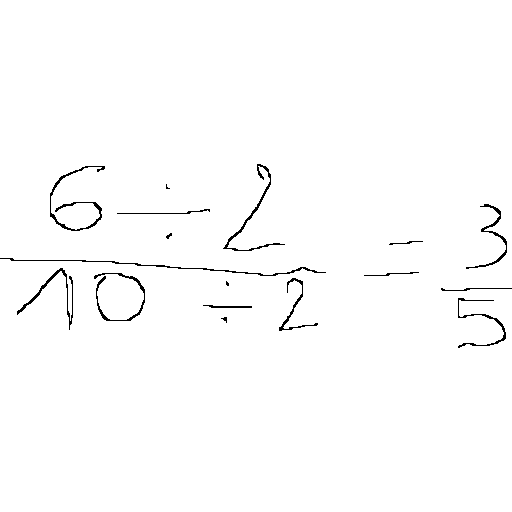 6 ÷ 2
10 ÷ 2
=
3
5